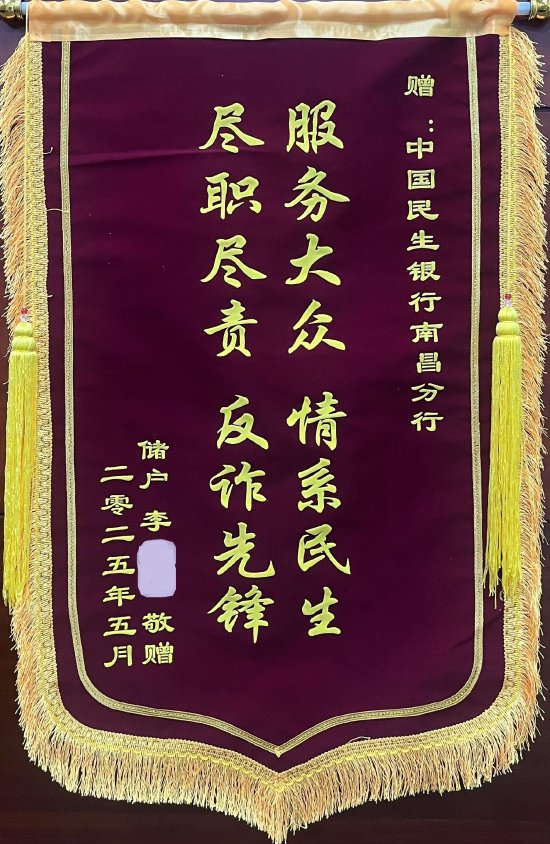 赠：中国民生银行南昌分行
服务大众 情系民生
尽职尽责 反诈先锋
储户 李 敬赠
二零二五年五月